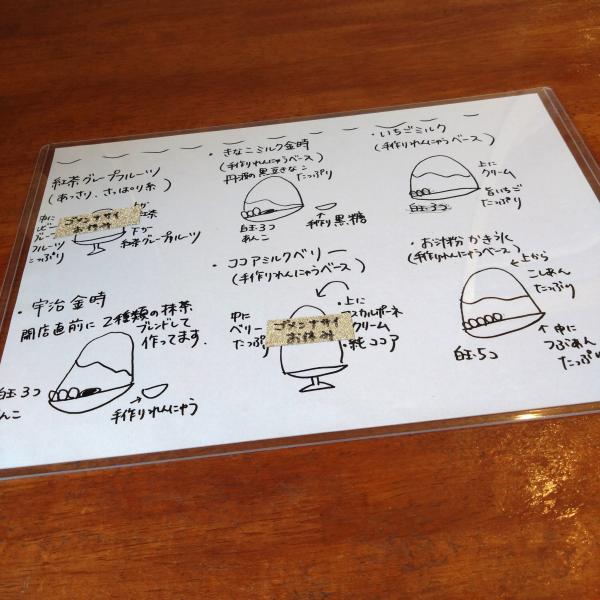 紅茶グレープフルーツ
(あっさり、さっぱり系)
中に
フルーツ
たっぷり
ゴメンナサイ
お休み
上が
紅茶
下が
紅茶グレープフルーツ
・きなこミルク金時
(手作りれんにゅうベース)
丹波の黒豆きなこ
たっぷり
白玉3コ
あんこ
手作り黒糖
・いちごミルク
(手作りれんにゅうベース)
上に
クリーム
旨いちご
たっぷり
白玉3コ
・宇治金時
開店直前に2種類の抹茶
ブレンドして
作ってます。
白玉3コ
あんこ
手作りれんにゅう
・ココアミルクベリー
(手作りれんにゅうベース)
中に
ベリー
たっぷり
ゴメンナサイ
お休み
・上に
マスカルポーネ
クリーム
・純ココア
・お汁粉かき氷
(手作りれんにゅうベース)
上から
こしあん
たっぷり
白玉5コ
中に
つぶあん
たっぷり